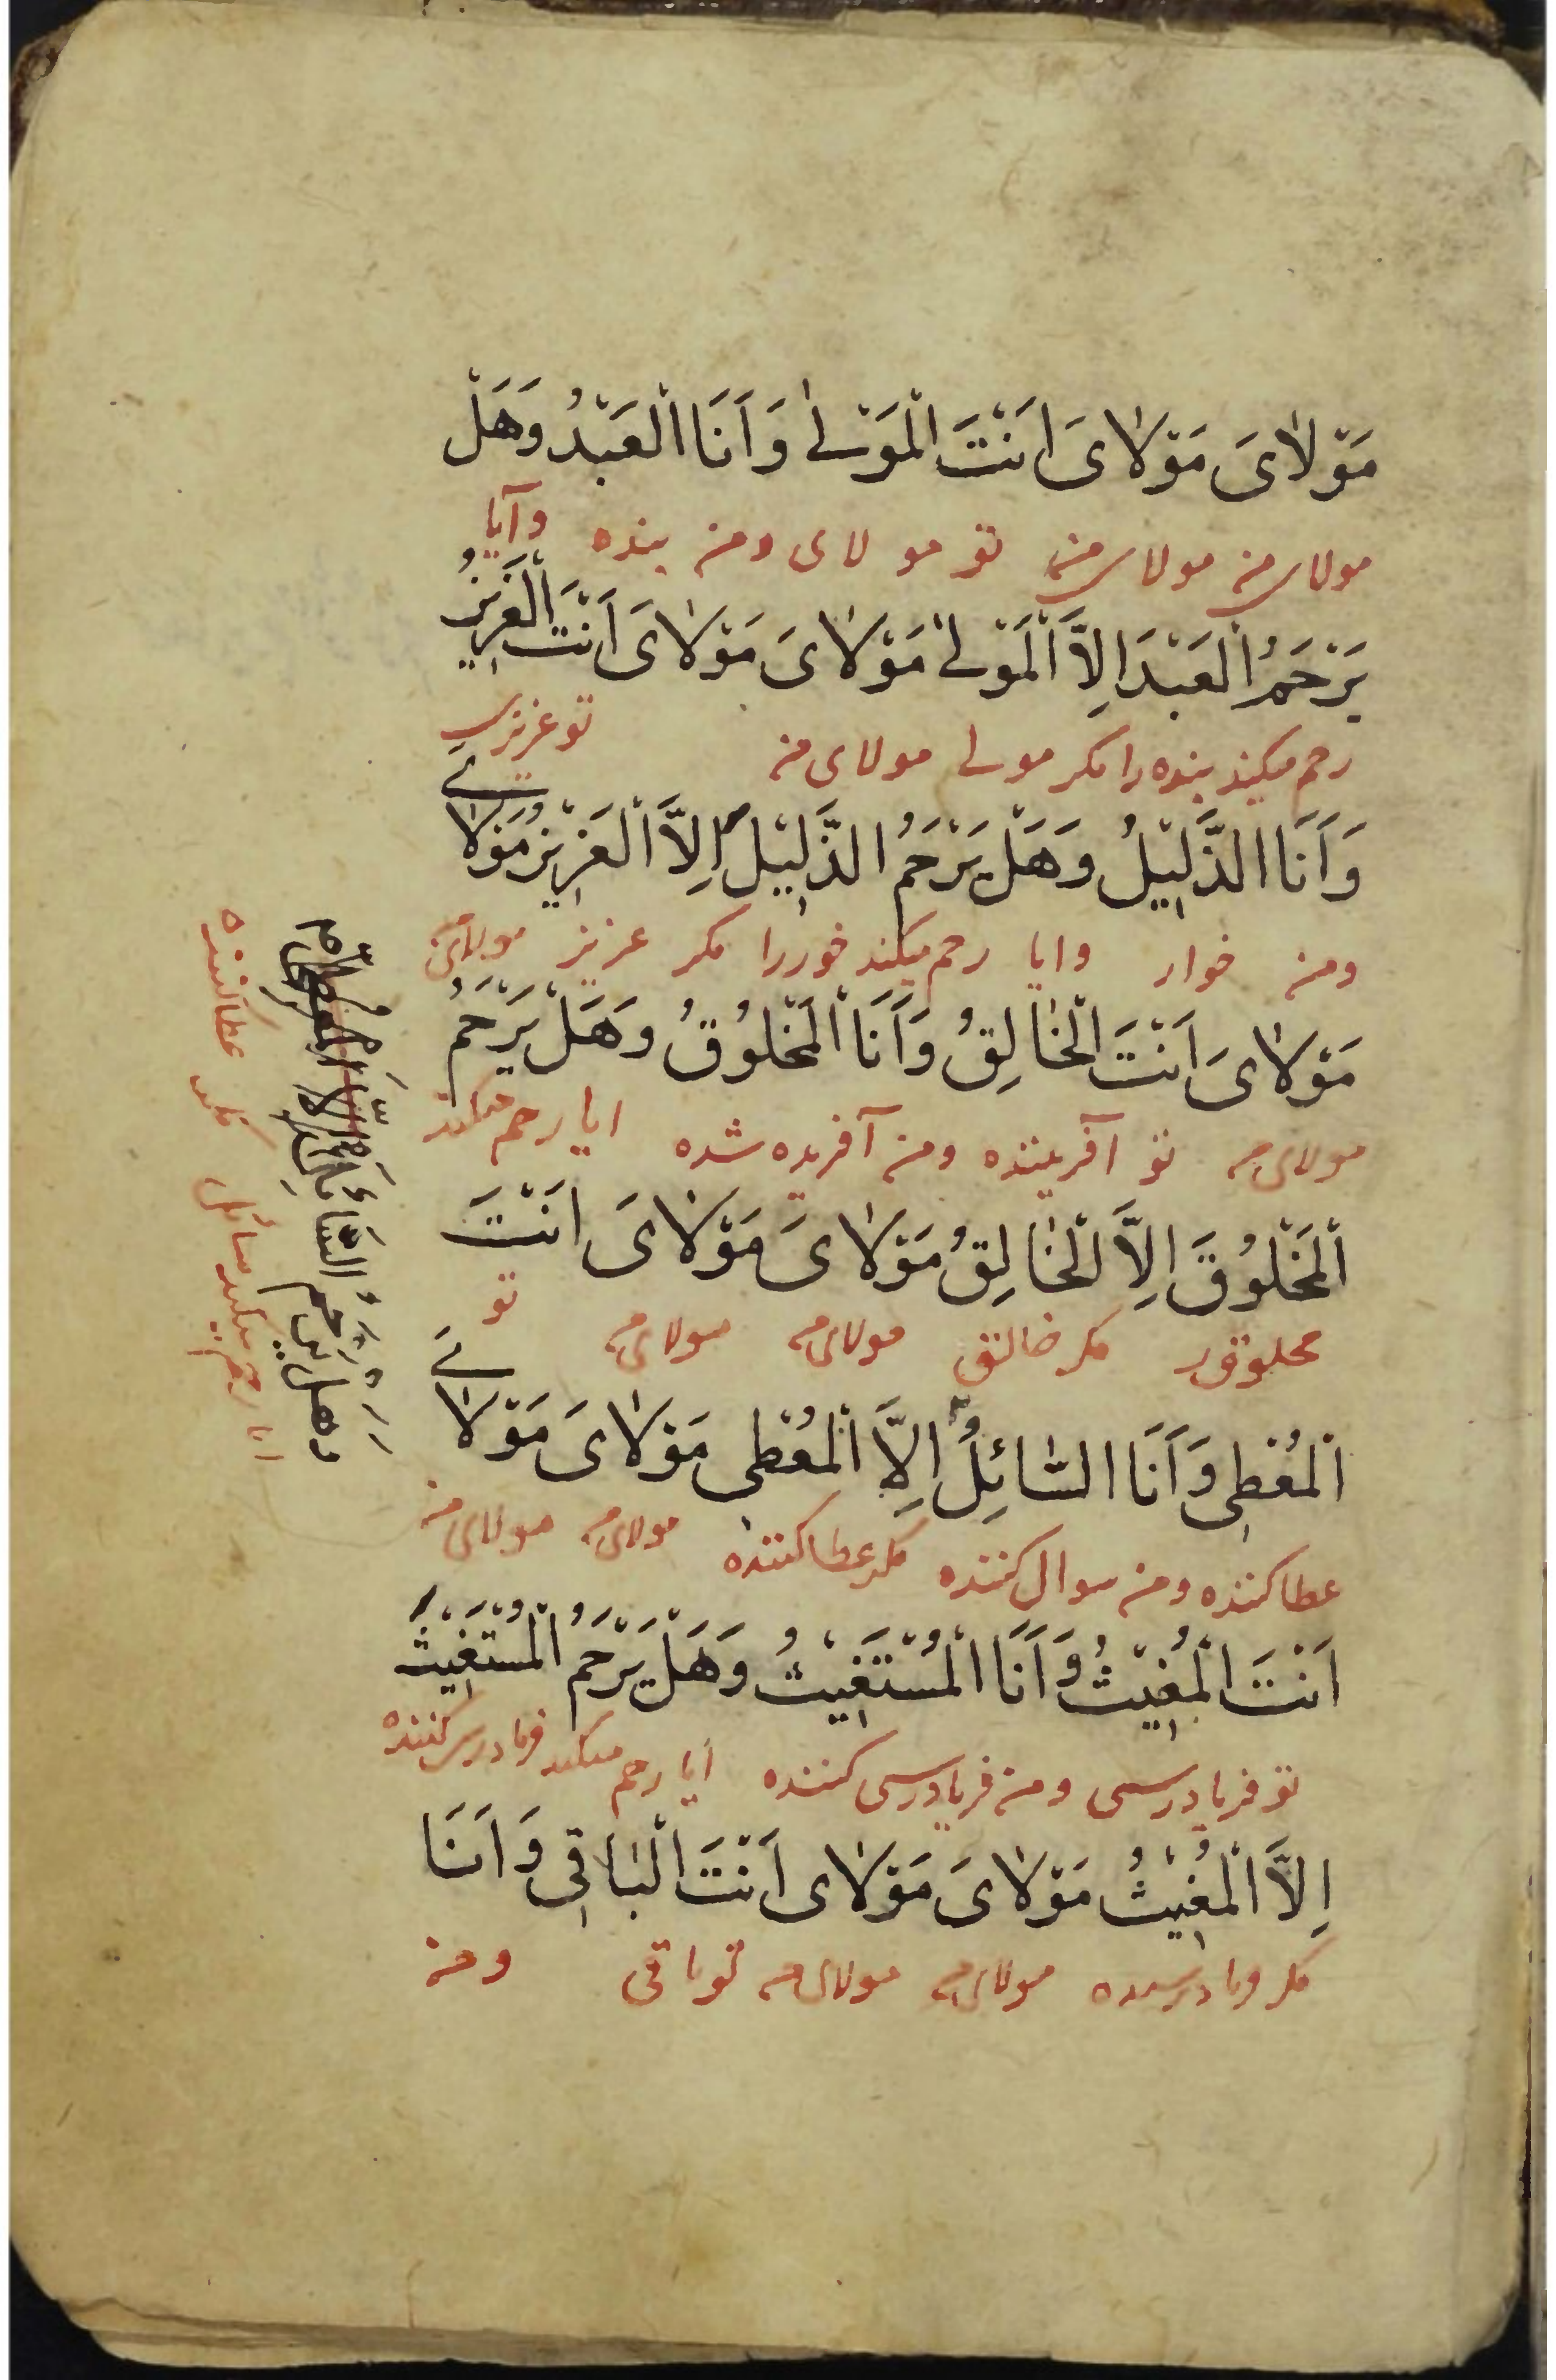 مَوْلَایَ مَوْلَایَ اَنْتَ الْمَوْلٰی وَ اَنَا الْعَبْدُ وَ هَلْ
مولای من مولای من تو مو لای و من بنده و آیا
یَرْحَمُ الْعَبْدَ اِلَّا الْمَوْلٰی مَوْلَایَ مَوْلَایَ اَنْتَ الْعَزِیزُ
رحم میکند بنده را مکر مولی مولای من تو عزیزی
وَ اَنَا الذَّلِیْلُ وَ هَلْ یَرْحَمُ الذَّلِیْلَ اِلَّا الْعَزِیْزُ مَوْلَایَ
و من خوار و ایا رحم میکند خوررا مکر عزیز مولای من
مَوْلَایَ اَنْتَ الْخَالِقُ وَ اَنَا الْمَخْلُوْقُ وَ هَلْ یَرْحَمُ
مولای من تو آفریننده و من آفریده شده ایا رحم میکند
الْمَخْلُوْقَ اِلَّا الْخَالِقُ مَوْلَایَ مَوْلَایَ اَنْتَ
مخلوقرا مکر خالق مولای من مولای من تو
الْمُعْطِی وَ اَنَا السَّائِلُ اِلَّا الْمُعْطِی مَوْلَایَ مَوْلَایَ
عطا کننده و من سوال کننده مکر عطا کننده مولای من مولای من
اَنْتَ الْمُغِیْثُ وَ اَنَا الْمُسْتَغِیْثُ وَ هَلْ یَرْحَمُ الْمُسْتَغِیْثَ
تو فریادرسی و من فریادرسی کننده ایا رحم میکند فریادرس کننده
اِلَّا الْمُغِیْثُ مَوْلَایَ مَوْلَای اَنْتَ الْبَاقِی وَ اَنَا
مکر فریادرسنده مولای من مولای من تو باقی و من
وَ هَلْ یَرْحَمُ السَّائِلَ
ایا رحم میکند سائل مکر عطا کننده